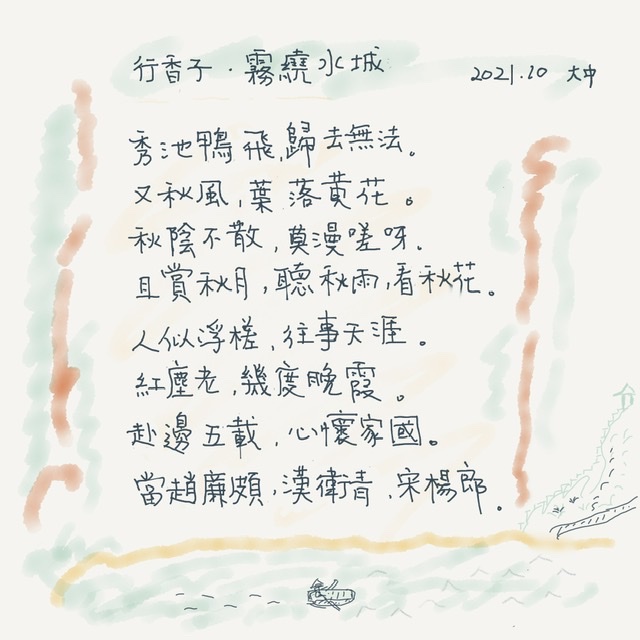 行香子·霧繞水城
2021.10 大中
秀池鴨飛,歸去無法。
又秋風,葉落黄花。
秋陰不散,莫漫嗟呀.
且賞秋月,聽秋雨,看秋花。
人似浮槎,往事天涯。
紅塵老,幾度晚霞。
赴邊五載,心懷家國。
當趙廉頗,漢衛青,宋楊郎。